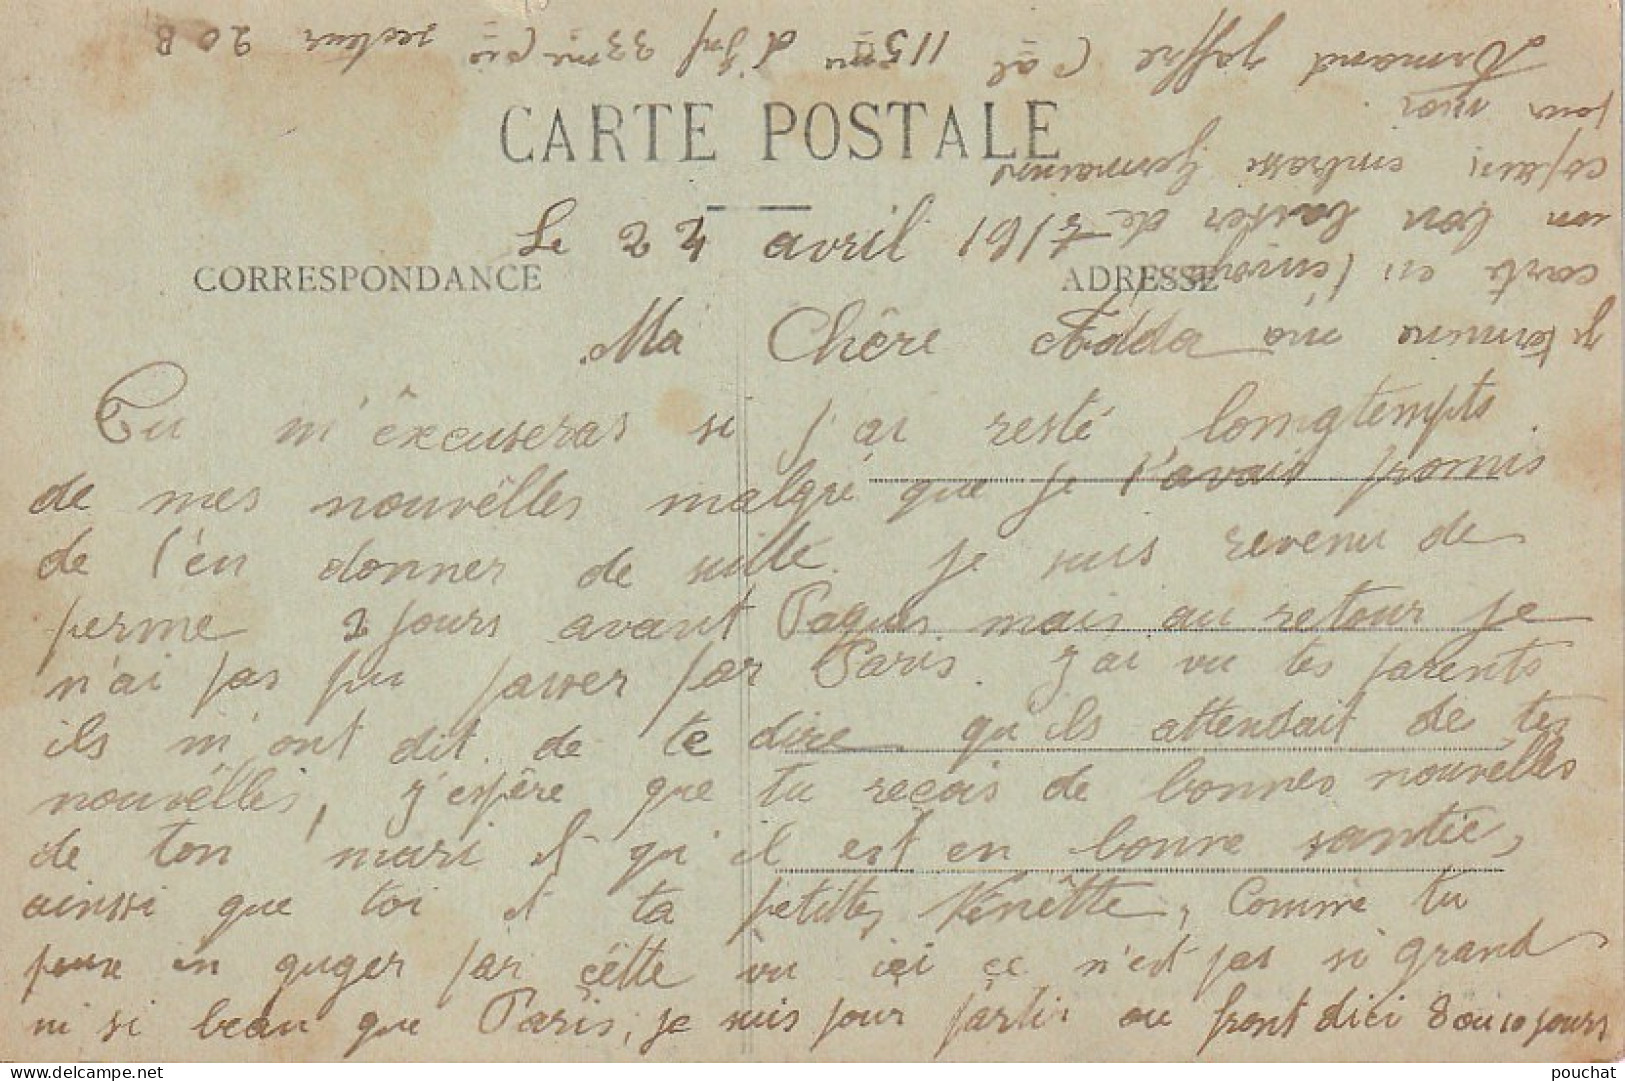 CARTE POSTALE
Le 24 avril 1917
CORRESPONDANCE
ADRESSE
Ma Chêre Adda
Tu m'êxcuseras si j'ai resté longtempts
de mes nouvêlles malgré que je t'avais promis
de t'en donner de suitte. Je suis revenu de
perme 2 jours avant Paques mais au retour je
n'ai pas pu passer par Paris. J'ai vu tes parents
ils m'ont dit de te dire qu'ils attendait de tes
nouvêlles, j'espêre que tu reçois de bonnes nouvêlles
de ton mari et qu'il est en bonne santée,
ainsi que toi et ta petitte Venêtte, Comme tu
peux en guger par cêtte vu ici ce n'est pas si grand
ni si beau que Paris, je suis pour partir au front dici 8 ou 10 jours
je termine ma
carte en t'envoyant
un bon baiser de ton
copain, embrasse Germaine
pour moi
Armand Jaffre Cal 115me d'Inf 33me Cie secteur 20 B
pouchat